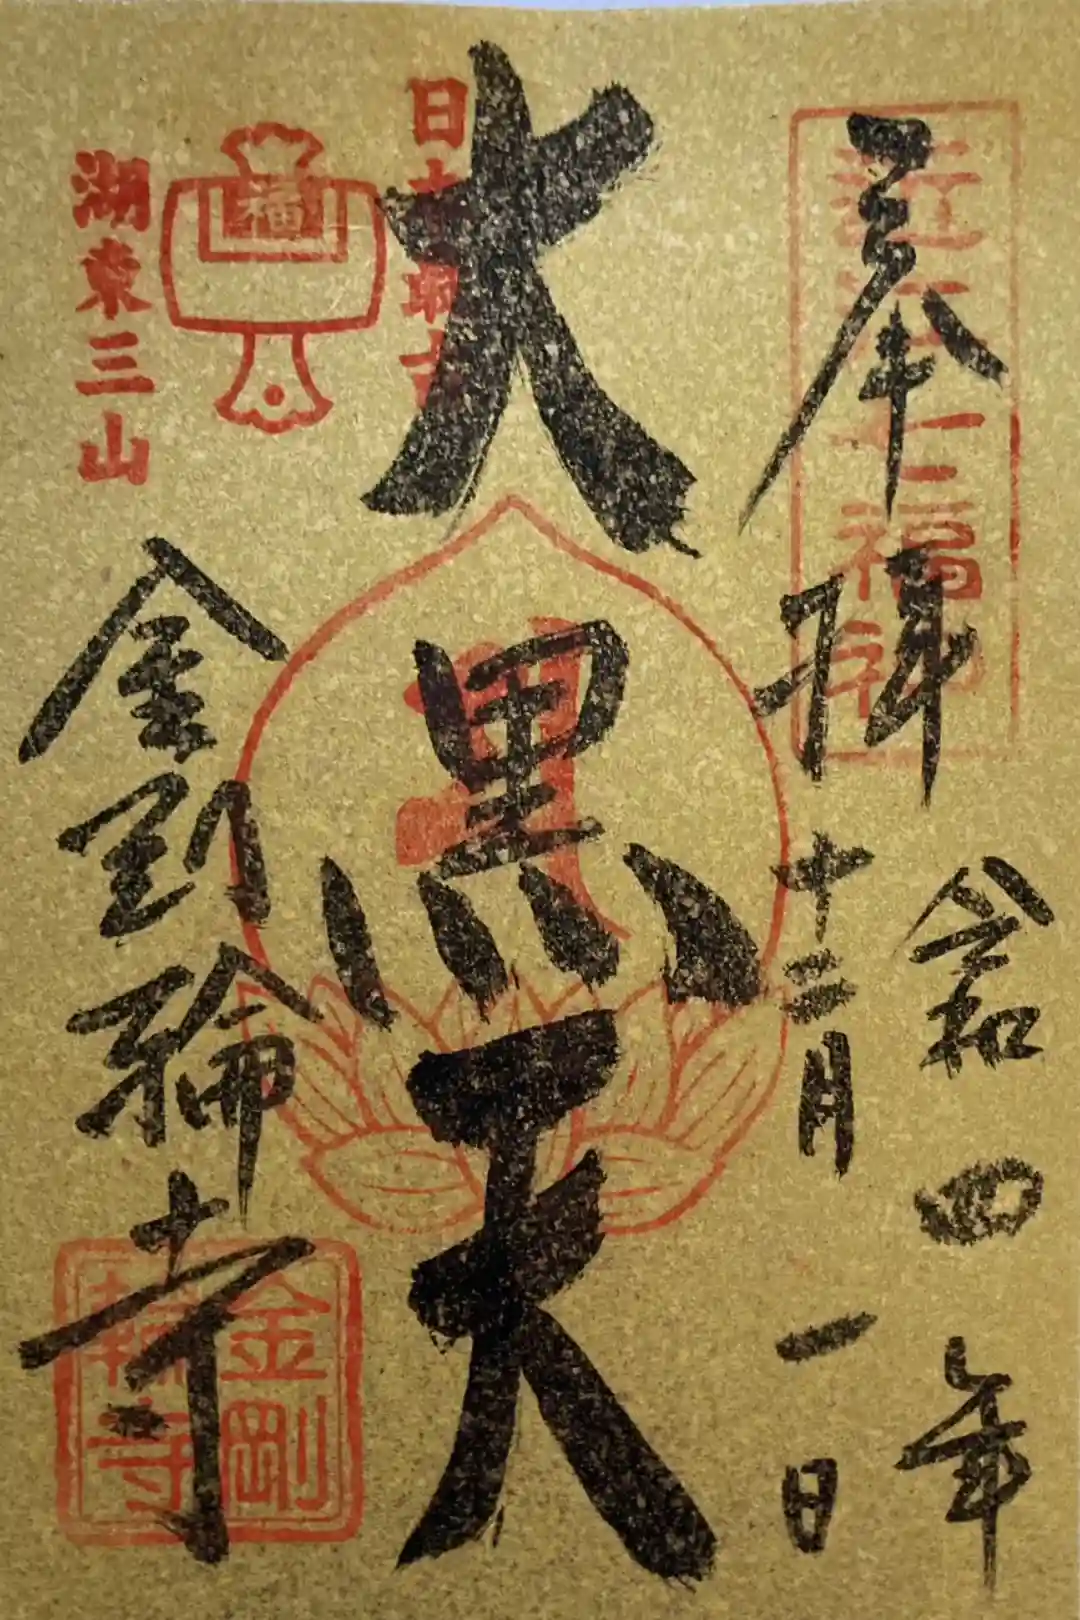 奉拝
近江七福神
令和四年
十二月一日
大黒天
日本最古
福
湖東三山
金剛輪寺
金剛輪寺